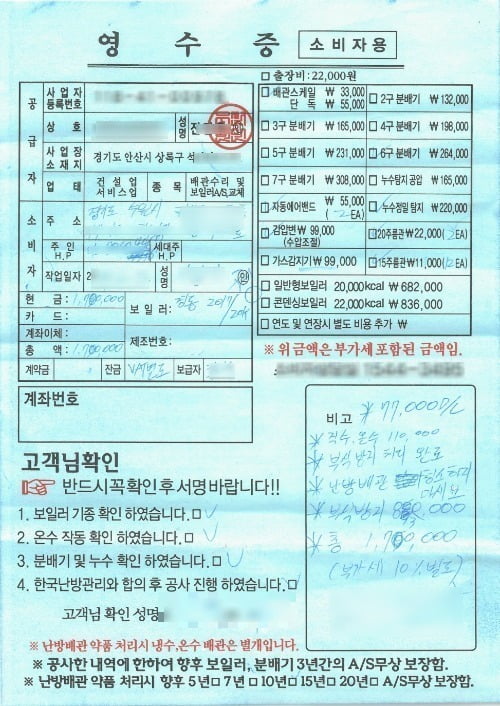 영 수 증 소비자용
□ 출장비: 22,000원
공급자
사업자등록번호
상호
성명 진
사업장소재지 경기도 안산시 상록구 석
업태 건설업 서비스업 종목 배관수리 및 보일러A/S,교체
소비자
주소
주인 H.P 세대주 H.P
작업일자 2 성명 인
현 금: 보 일 러:
카 드:
계좌이체: 제조번호:
총 액:
계약금 잔금 VAT별도 보급자
□ 배관스케일 ₩ 33,000
단 독 ₩ 55,000
□ 2구 분배기 ₩ 132,000
□ 3구 분배기 ₩ 165,000
□ 4구 분배기 ₩ 198,000
□ 5구 분배기 ₩ 231,000
□ 6구 분배기 ₩ 264,000
□ 7구 분배기 ₩ 308,000
□ 누수탐지 공압 ₩ 165,000
□ 자동에어밴드 ₩ 55,000 (2EA)
□ 누수정밀 탐지 ₩ 220,000
□ 감압변 ₩ 99,000 (수압조절)
□ 20주름관 ₩22,000 ( EA)
□ 가스감지기 ₩ 99,000
□ 15주름관 ₩11,000 ( EA)
□ 일반형보일러 20,000kcal ₩ 682,000
□ 콘덴싱보일러 22,000kcal ₩ 836,000
□ 연도 및 연장시 별도 비용 추가 ₩
※ 위금액은 부가세 포함된 금액임.
1544-3495
계좌번호
고객님확인
☞ 반드시꼭 확인 후 서명 바랍니다!!
1. 보일러 기종 확인 하였습니다.□
2. 온수 작동 확인 하였습니다.□
3. 분배기 및 누수 확인 하였습니다.□
4. 한국난방관리와 합의 후 공사 진행 하였습니다.□
고객님 확인 성명
비고 ₩ 77,000
※ 직수.온수 110,000
※ 부식방지 처리 완료
※ 난방배관 청소처리
※ 부식방지
※ 총
(부가세 10% 별도)
※ 난방배관 약품 처리시 냉수,온수 배관은 별개입니다.
※ 공사한 내역에 한하여 향후 보일러, 분배기 3년간의 A/S무상 보장함.
※ 난방배관 약품 처리시 향후 5년□ 7년 □ 10년□ 15년□ 20년□ A/S무상 보장함.